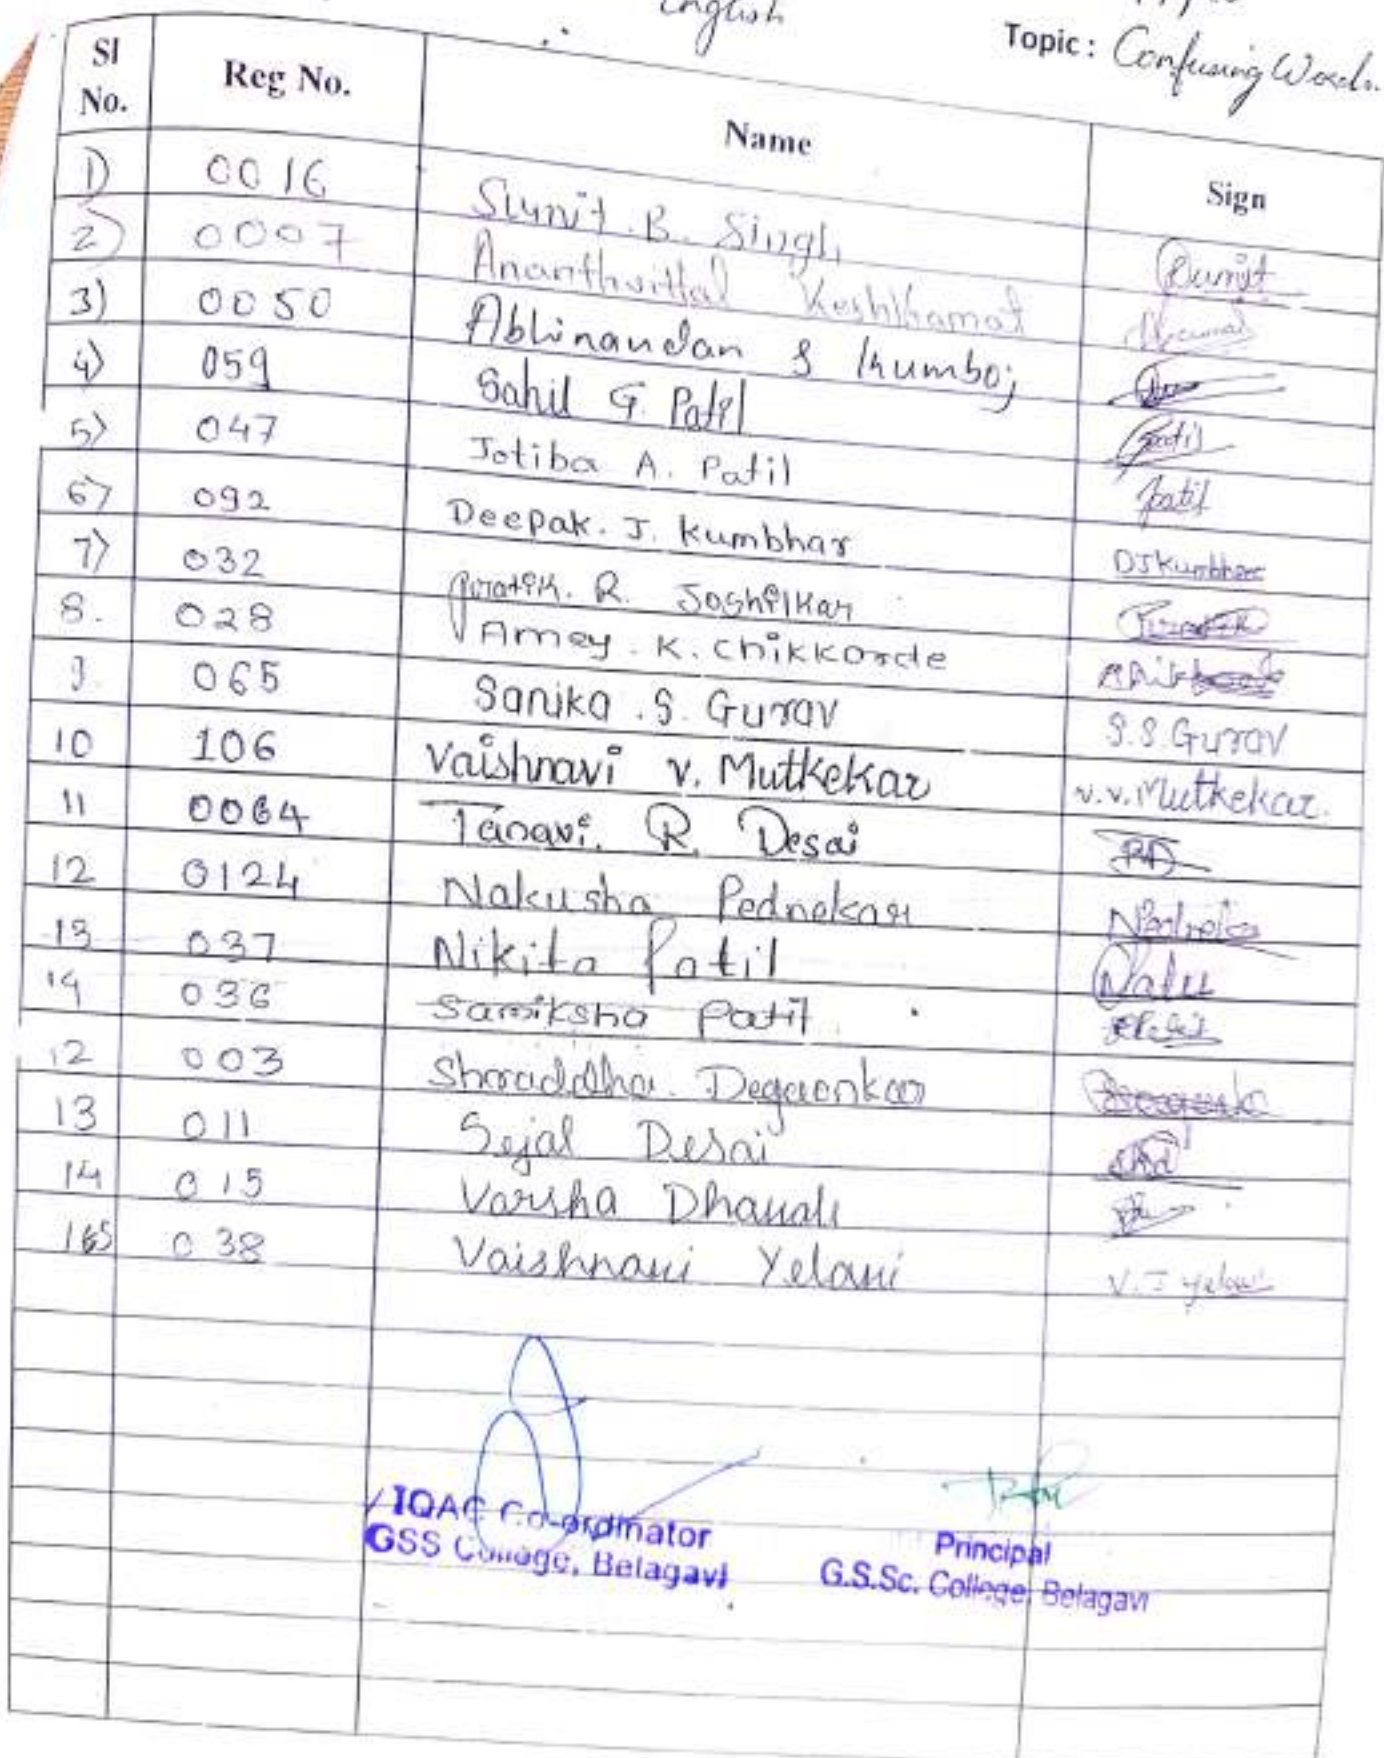 English
Topic : Confusing Words.
Sl No. Reg No. Name Sign
1) 0016 Sumit . B. Singh
2) 0007 Ananthvittal
3) 0050 Abhinandan S Kumboj
4) 059 Sahil G. Patil Patil
5) 047 Jotiba A. Patil Patil
6) 092 Deepak. J. Kumbhar DJKumbhar
7) 032 Pratik. R. Joshilkar Pratik
8. 028 Amey . K. Chikkorde
9. 065 Sanika .S. Gurav S.S.Gurav
10 106 Vaishnavi v. Mutkekar v.v.Mutkekar.
11 0064 Tanavi. R. Desai
12 0124 Nakusha Pednekar
13 037 Nikita Patil
14 036 Samiksha Patil
12 003 Shraddha. Degaonkar
13 011 Sejal Desai
14 015 Varsha
165 038 Vaishnavi Yelavi V. J Yelavi
IQAC Co-ordinator
GSS College, Belagavi
Principal
G.S.Sc. College, Belagavi